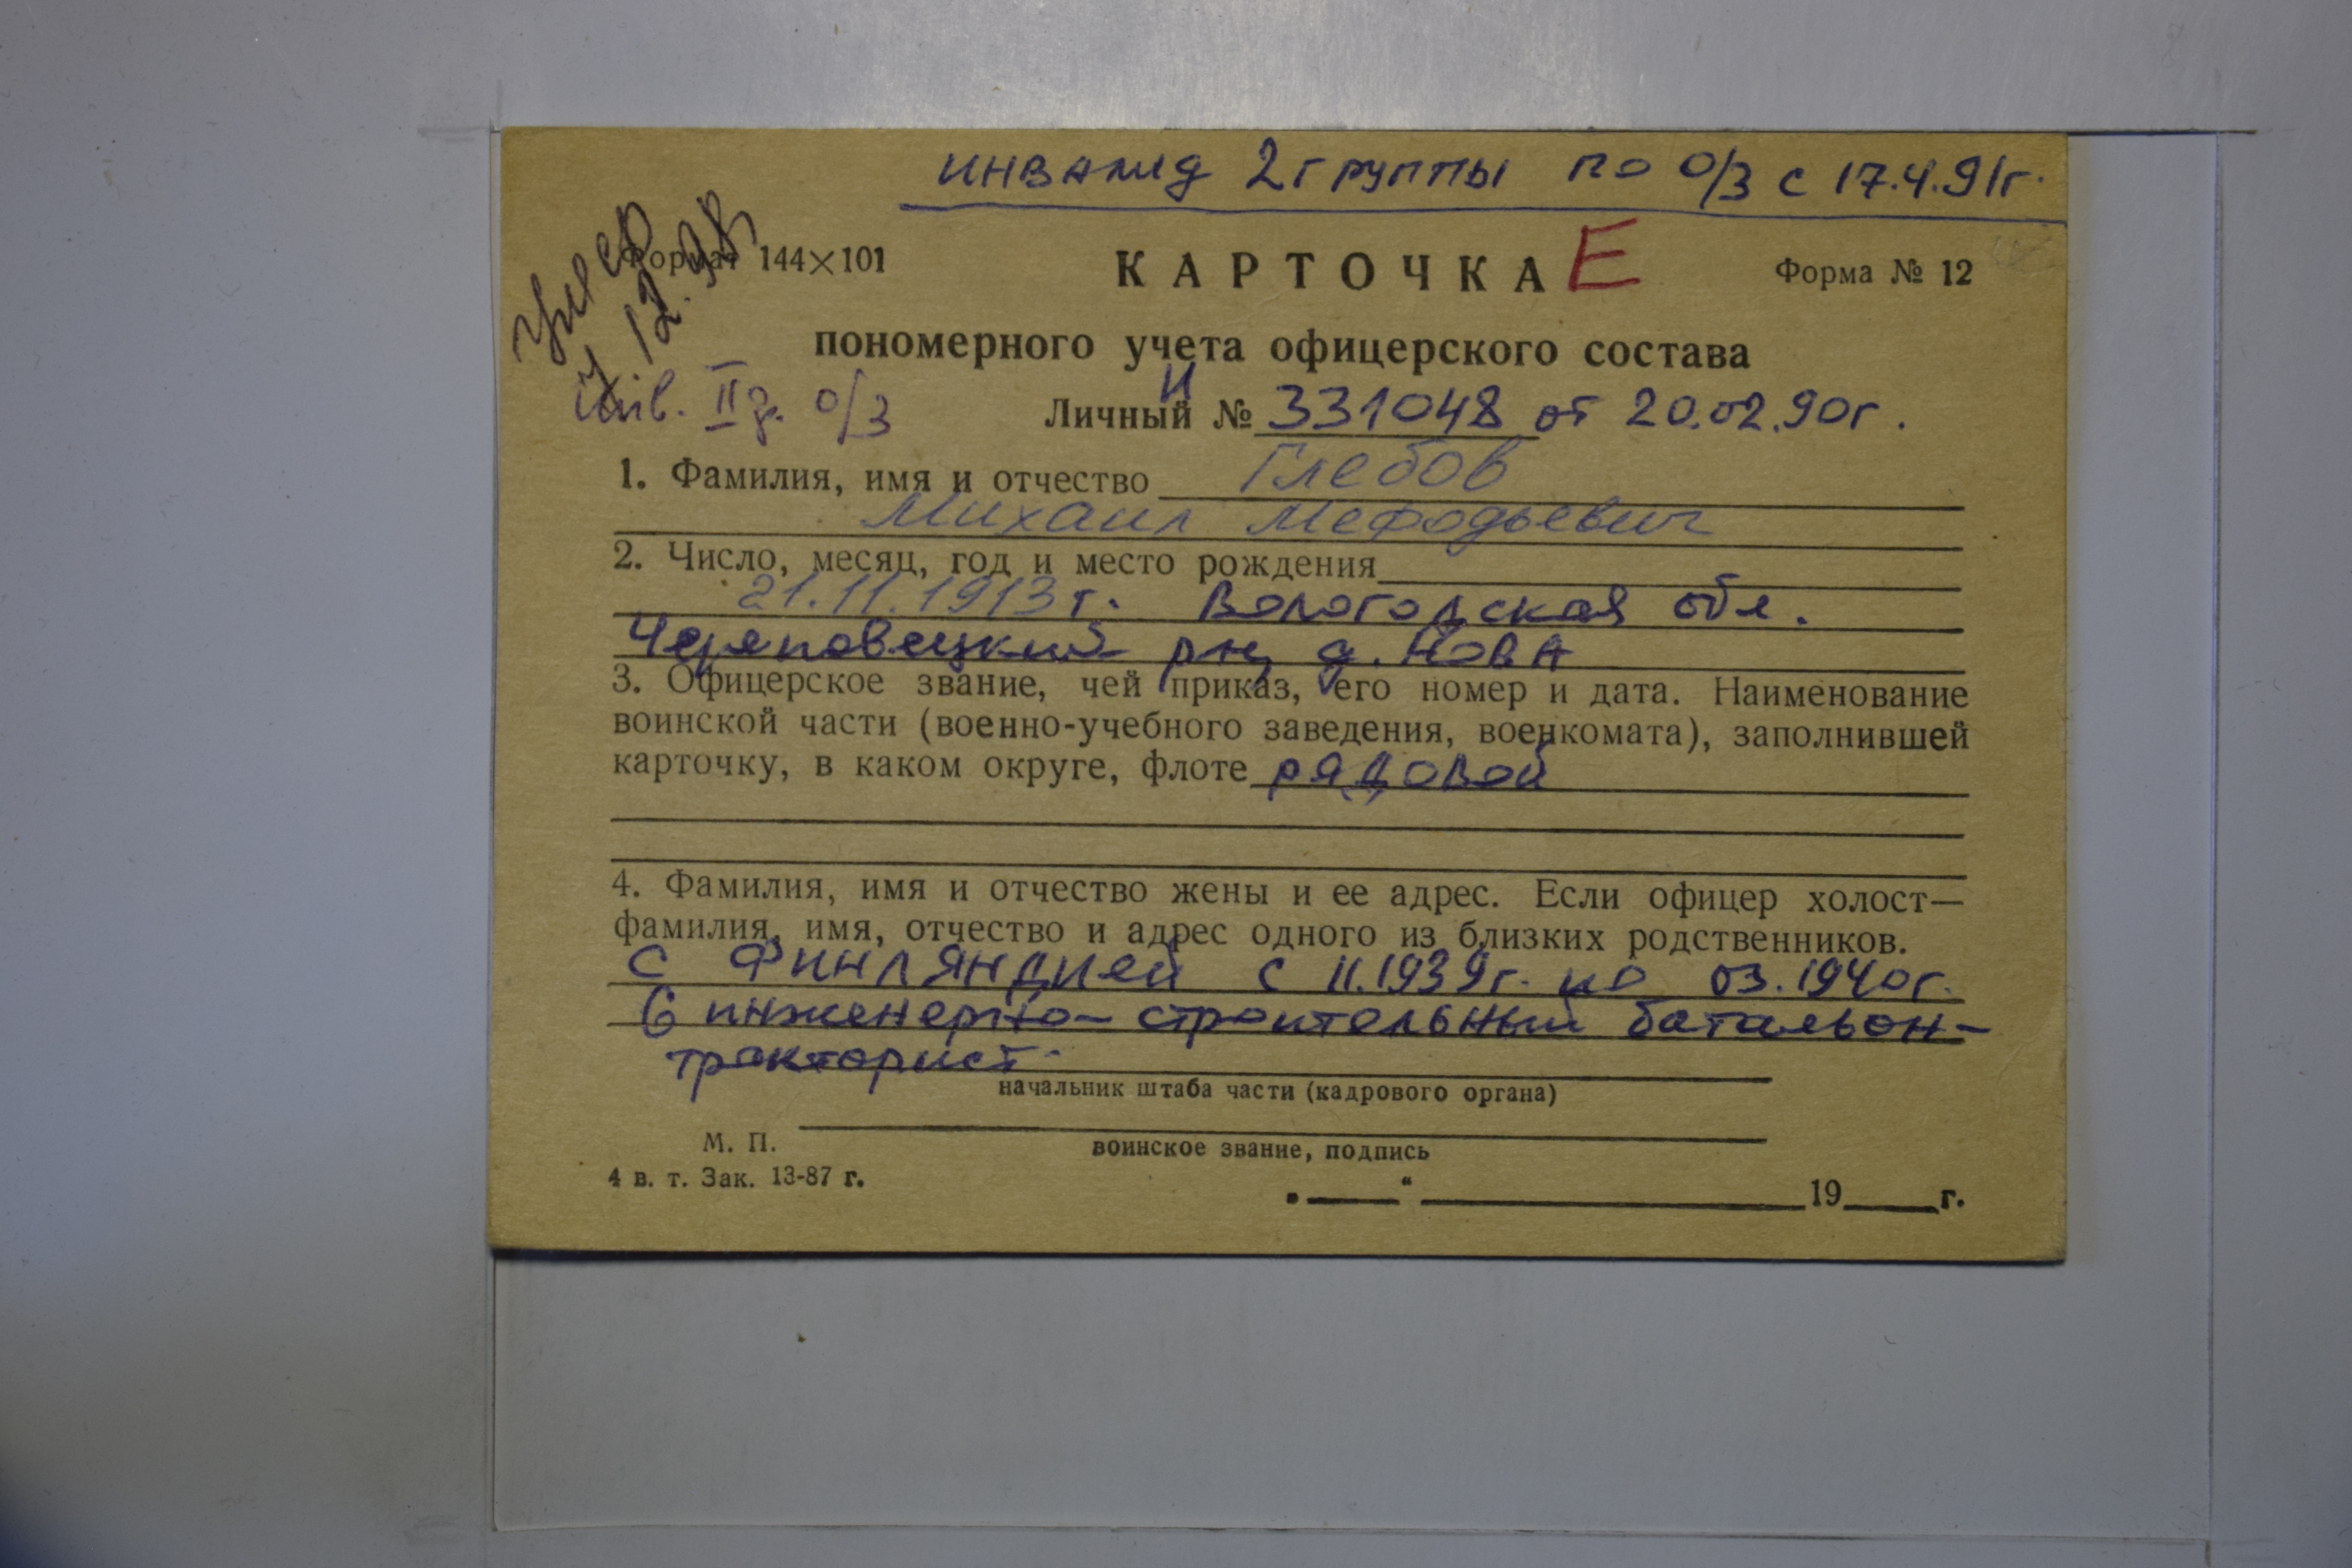 инвалид 2 группы по о/з с 17.4.91г.
умер
12.98
Формат 144×101
КАРТОЧКА Е
Форма № 12
пономерного учета офицерского состава
инв. II г. о/з
И
Личный № 331048 от 20.02.90г.
1. Фамилия, имя и отчество Глебов
Михаил Мефодьевич
2. Число, месяц, год и место рождения
21.11.1913 г. Вологодская обл.
Череповецкий рн, д. Нова
3. Офицерское звание, чей приказ, его номер и дата. Наименование
воинской части (военно-учебного заведения, военкомата), заполнившей
карточку, в каком округе, флоте рядовой
4. Фамилия, имя и отчество жены и ее адрес. Если офицер холост—
фамилия, имя, отчество и адрес одного из близких родственников.
с Финляндией с 11.1939г. по 03.1940г.
6 инженерно-строительный батальон-
тракторист.
начальник штаба части (кадрового органа)
М. П.
воинское звание, подпись
4 в. т. Зак. 13-87 г.
„ “ 19 г.